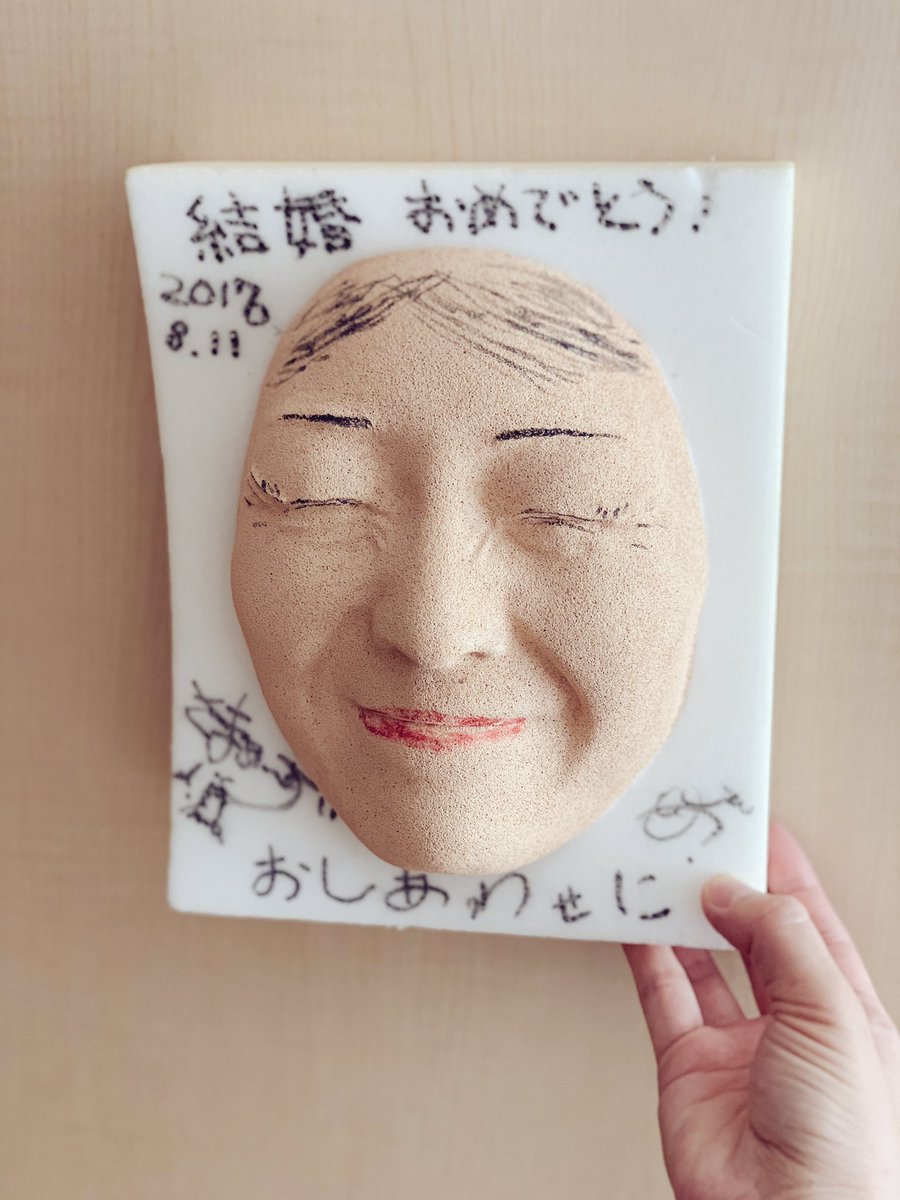 結婚 おめでとう!
2017
8.11
おしあわせに